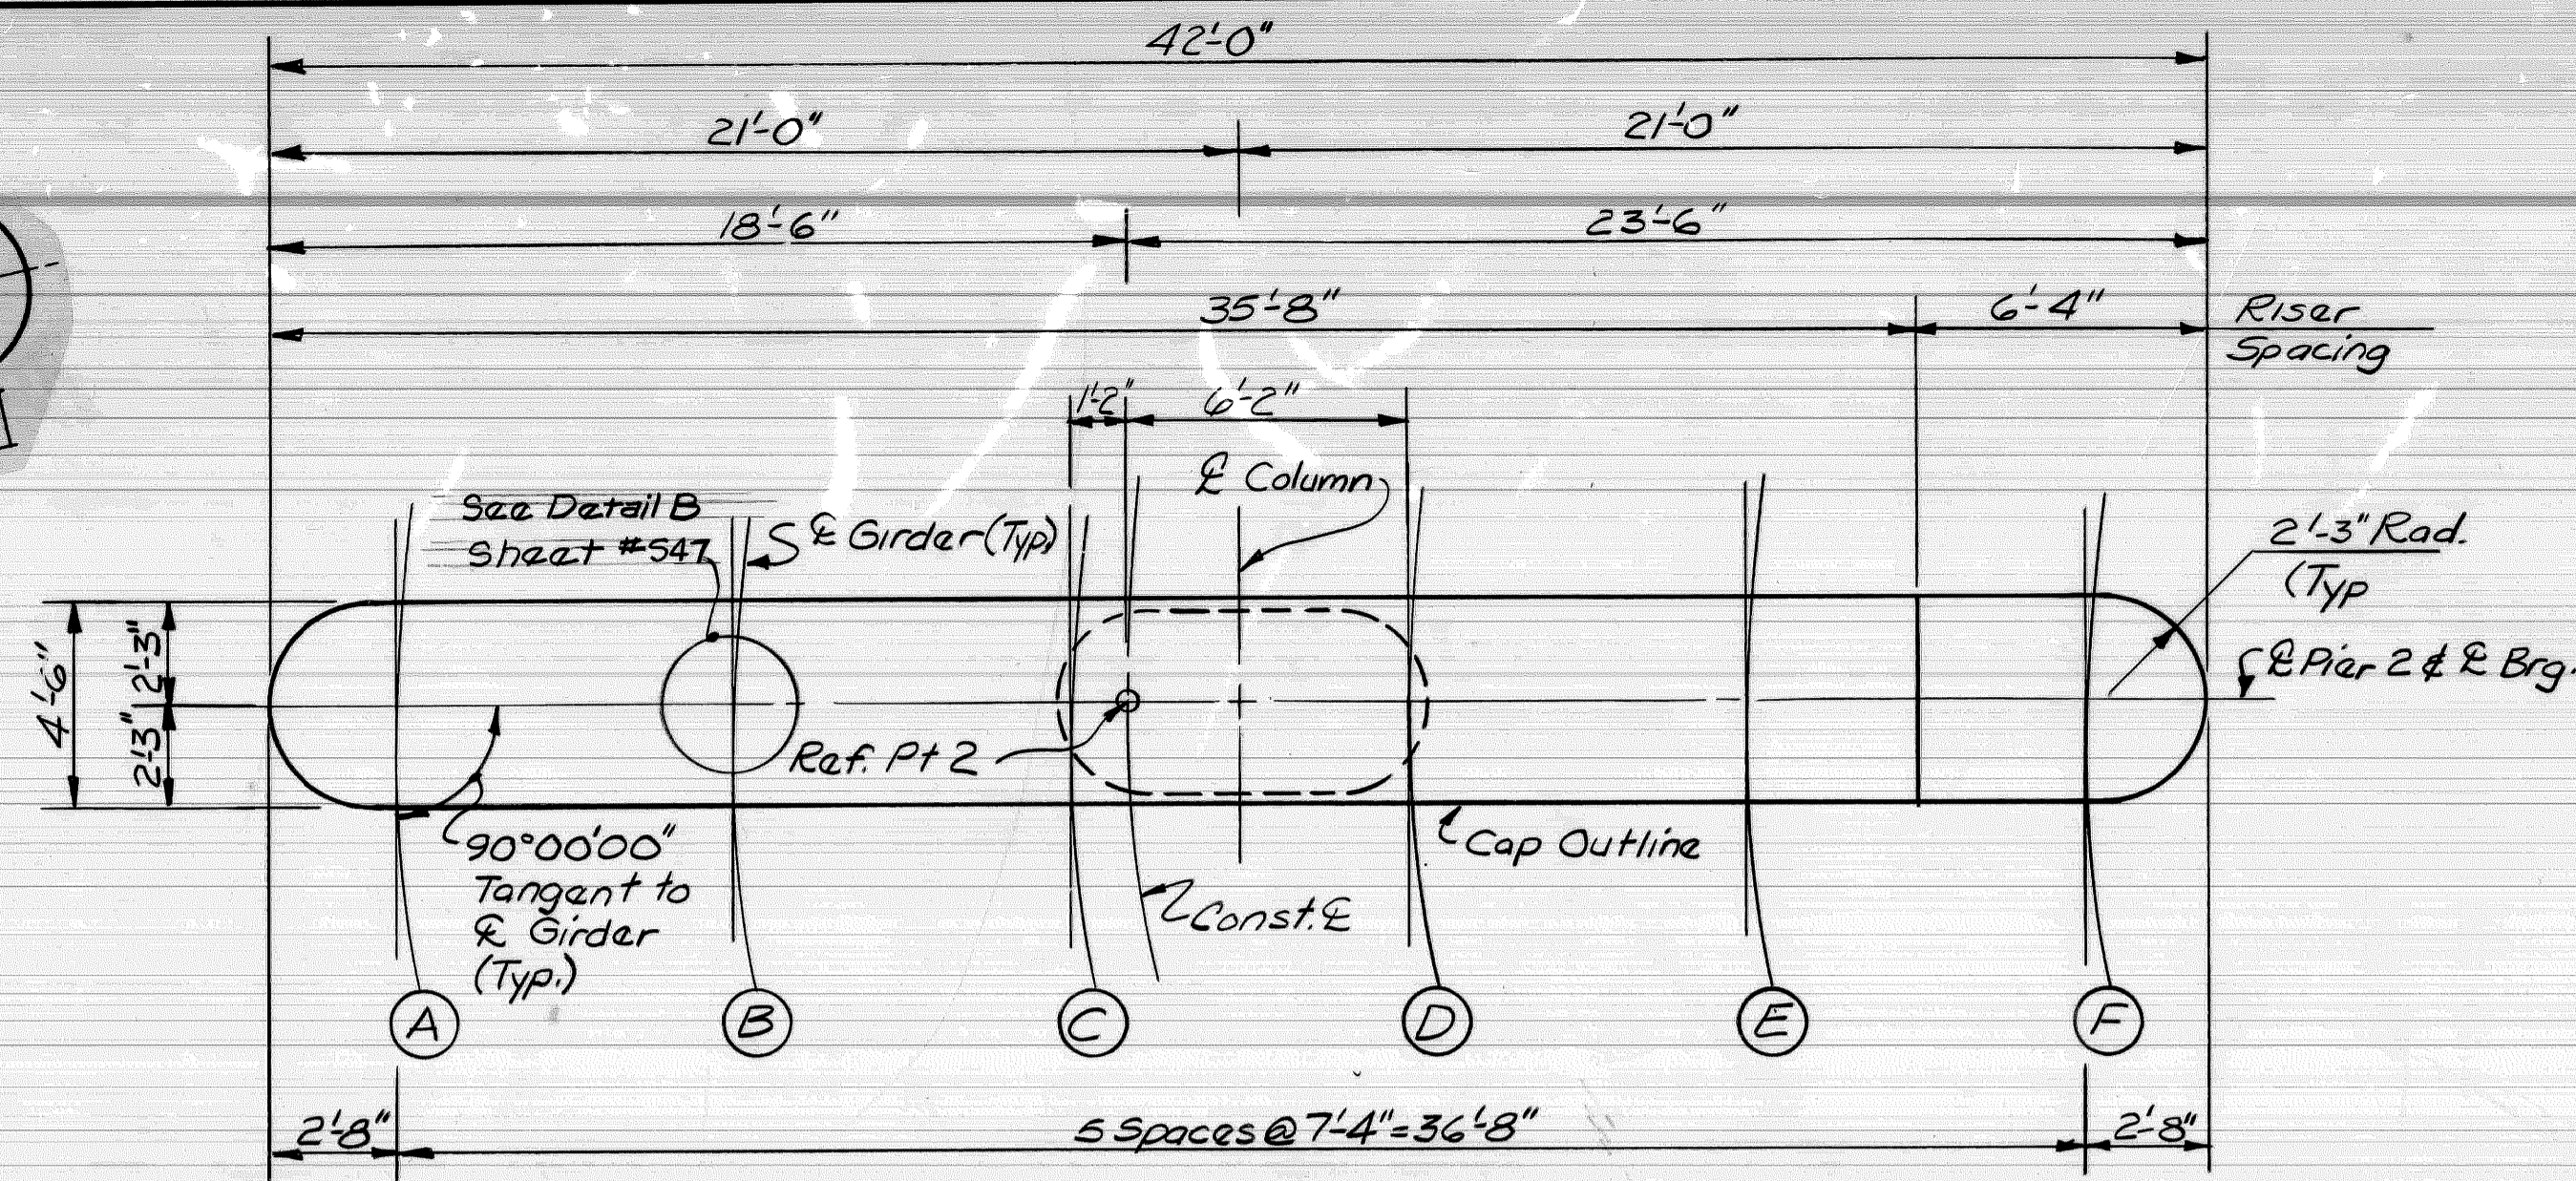 42'-0"
21'-0" 21'-0"
18'-6" 23'-6"
35'-8" 6'-4" Riser
Spacing
1'-2" 6'-2"
℄ Column
See Detail B
Sheet #547
℄ Girder (Typ)
2'-3" Rad.
(Typ
4'-6" 2'-3"
2'-3"
℄ Pier 2 & ℄ Brg.
Ref. Pt 2
90°00'00"
Tangent to
℄ Girder
(Typ.)
Cap Outline
Const. ℄
A B C D E F
2'-8" 5 Spaces @ 7'-4" = 36'-8" 2'-8"